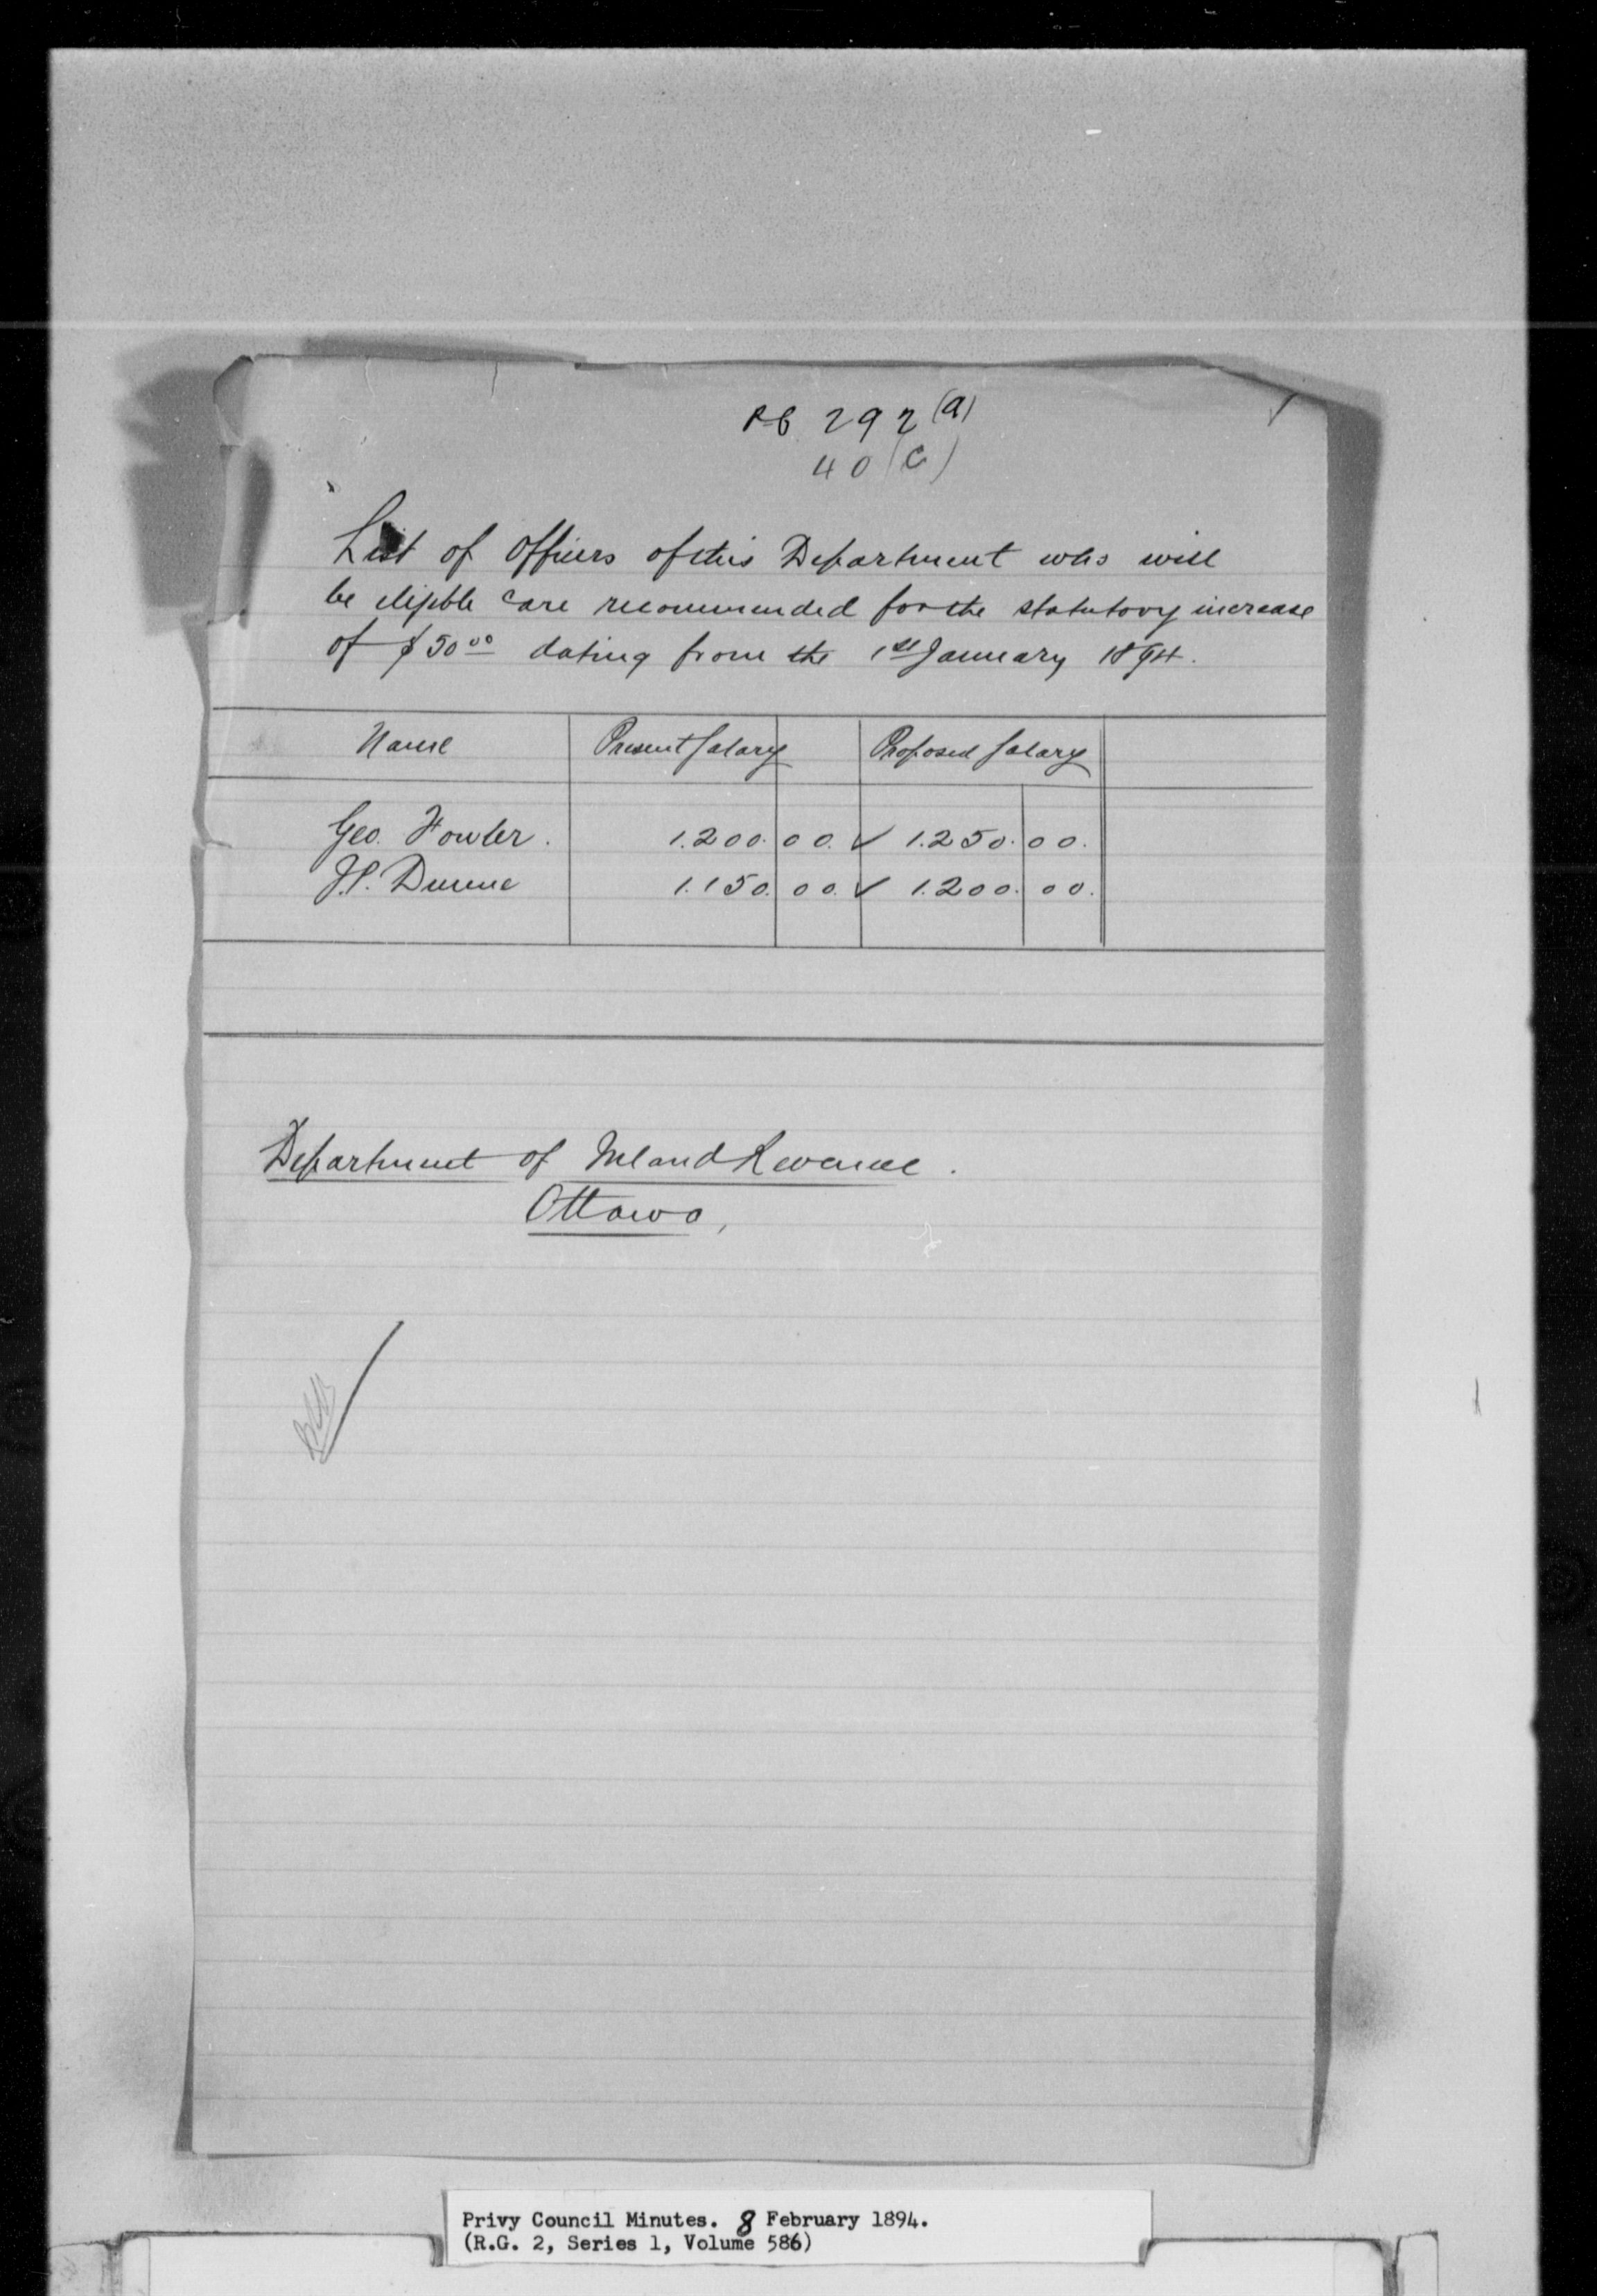 PC 292 (a)
40 (C)
List of Officers of this Department who will
be eligible & are recommended for the statutory increase
of $50 00 dating from the 1st January 1894.
Name Present Salary Proposed Salary
Geo. Fowler. 1.200. 00. ✓ 1.250. 00.
1.150. 00. ✓ 1.200. 00.
Department of Inland Revenue.
Ottawa,
Privy Council Minutes. 8 February 1894.
(R.G. 2, Series 1, Volume 586)